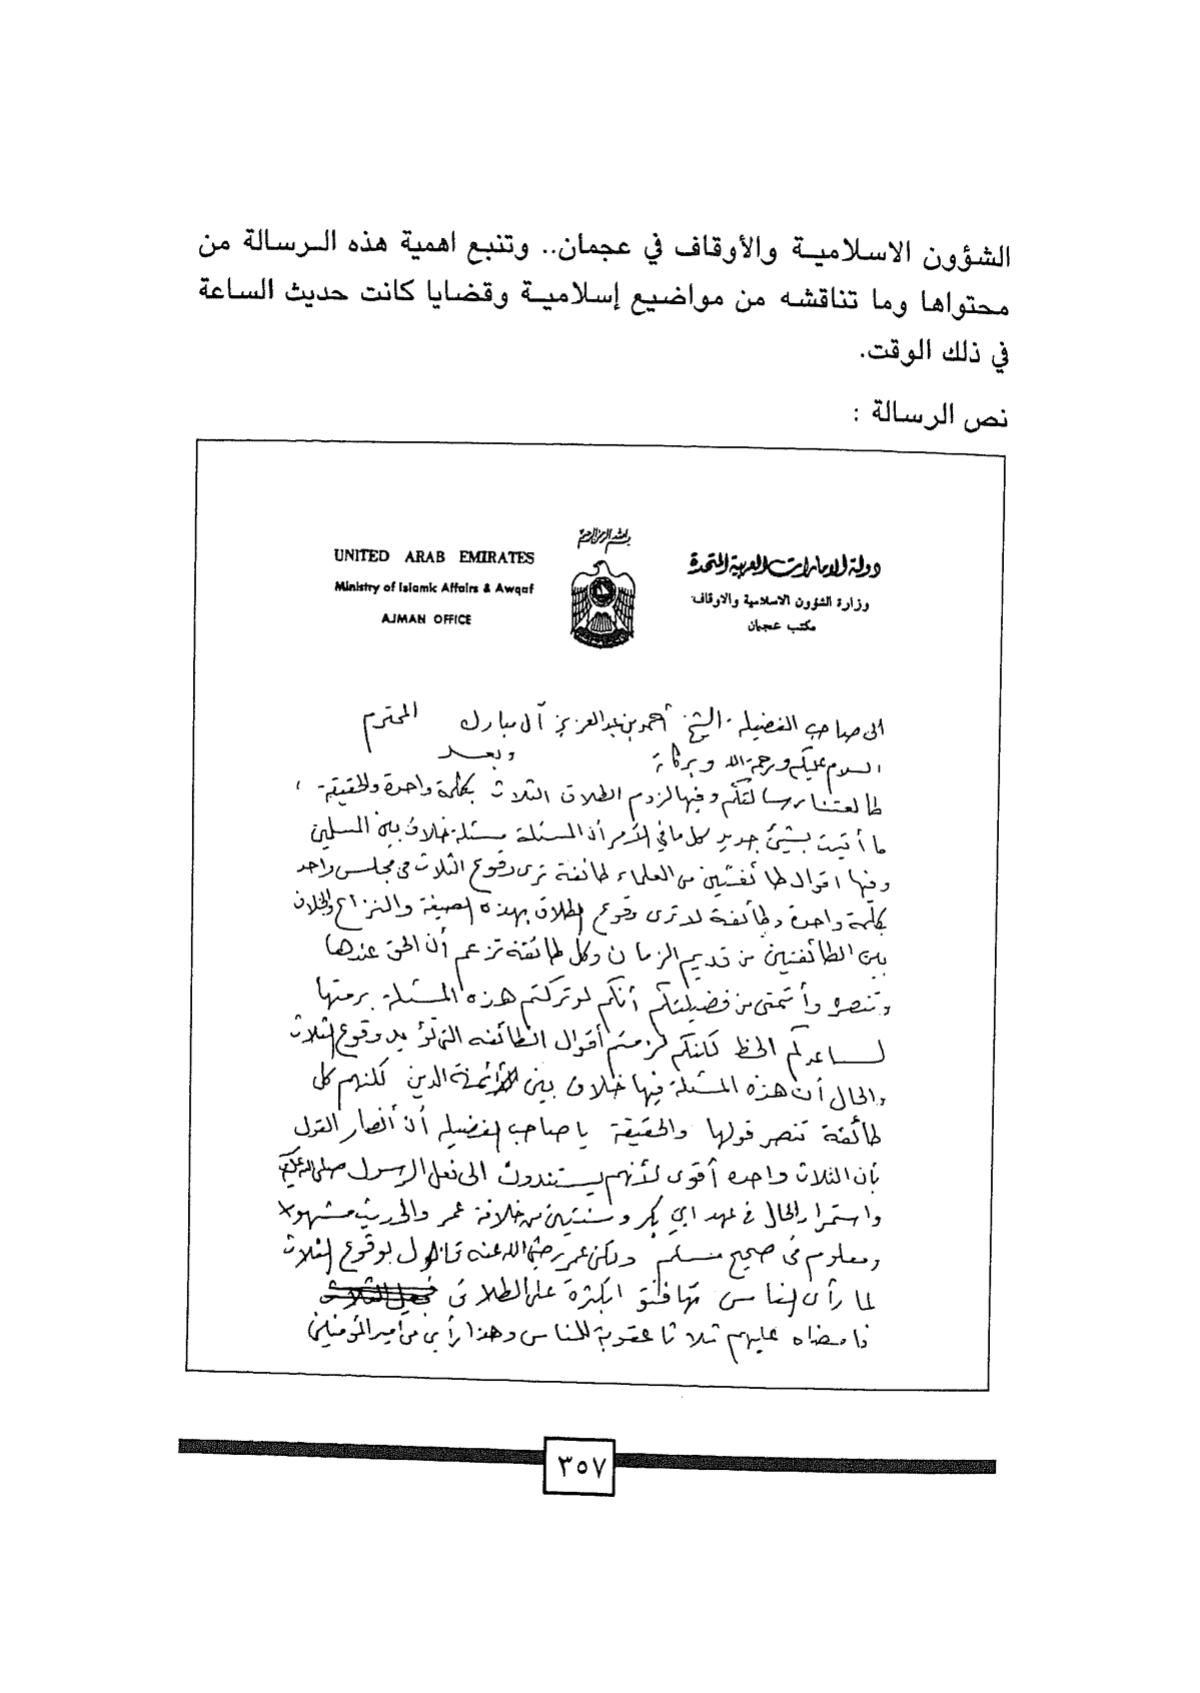 الشؤون الاسلامية والأوقاف في عجمان.. وتنبع اهمية هذه الرسالة من
محتواها وما تناقشه من مواضيع إسلامية وقضايا كانت حديث الساعة
في ذلك الوقت.
نص الرسالة :
بسم الله الرحمن الرحيم
دولة الامارات العربية المتحدة
وزارة الشؤون الاسلامية والاوقاف
مكتب عجمان
UNITED ARAB EMIRATES
Ministry of Islamic Affairs & Awqaf
AJMAN OFFICE
الى صاحب الفضيلة الشيخ أحمد بن عبدالعزيز آل مبارك المحترم
السلام عليكم ورحمة الله وبركاته وبعد
طالعتنا رسالتكم وفيها لزوم الطلاق الثلاث بكلمة واحدة والحقيقة
ما أتيت بشيئ جديد كل ما في الأمر أن المسئلة مسئلة خلاف بين المسلمين
وفيها اقوال طائفتين من العلماء طائفة ترى وقوع الثلاث في مجلس واحد
بكلمة واحدة وطائفة لا ترى وقوع الطلاق بهذه الصيغة والنزاع والخلاف
بين الطائفتين من قديم الزمان وكل طائفة تزعم أن الحق عندها
وتنصره وأتمنى من فضيلتكم أنكم لو تركتم هذه المسئلة برمتها
لساعدكم الحظ لكنكم لزمتم أقوال الطائفه التي تؤيد وقوع الثلاث
والحال أن هذه المسئلة فيها خلاف بين أئمة الدين لكنهم كل
طائفة تنصر قولها والحقيقة يا صاحب الفضيله أن أنصار القول
بأن الثلاث واحده أقوى لأنهم يستندون الى فعل الرسول صلى الله عليه
واستمرار الحال في عهد ابي بكر وسنتين من خلافة عمر والحديث مشهور
ومعلوم في صحيح مسلم ولكن عمر رضي الله عنه قال بوقوع الثلاث
لما رأى الناس تهافتو بكثرة على الطلاق
فامضاه عليهم ثلاثا عقوبة للناس وهذا رأي من أمير المؤمنين
٣٥٧